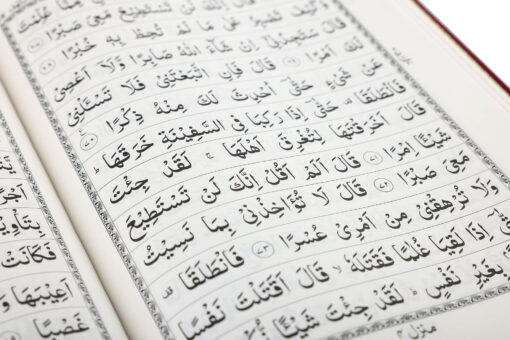 مِمَّا عُلِّمْتَ
قَالَ إِنَّكَ لَنْ تَسْتَطِيعَ مَعِيَ صَبْرًا
وَكَيْفَ تَصْبِرُ عَلٰى مَا لَمْ تُحِطْ بِهٖ خُبْرًا ﴿٦٨﴾
قَالَ سَتَجِدُنِيْٓ اِنْ شَآءَ اللّٰهُ صَابِرًا وَّلَآ اَعْصِيْ
لَكَ اَمْرًا ﴿٦٩﴾ قَالَ فَاِنِ اتَّبَعْتَنِيْ فَلَا تَسْـَٔلْنِيْ
عَنْ شَيْءٍ حَتّٰٓى اُحْدِثَ لَكَ مِنْهُ ذِكْرًا ﴿٧٠﴾
فَانْطَلَقَا حَتّٰٓى اِذَا رَكِبَا فِي السَّفِيْنَةِ خَرَقَهَا ط
قَالَ اَخَرَقْتَهَا لِتُغْرِقَ اَهْلَهَا ج لَقَدْ جِئْتَ
شَيْـًٔا اِمْرًا ﴿٧١﴾ قَالَ اَلَمْ اَقُلْ اِنَّكَ لَنْ تَسْتَطِيْعَ
مَعِيَ صَبْرًا ﴿٧٢﴾ قَالَ لَا تُؤَاخِذْنِيْ بِمَا نَسِيْتُ
وَلَا تُرْهِقْنِيْ مِنْ اَمْرِيْ عُسْرًا ﴿٧٣﴾ فَانْطَلَقَا
اِذَا لَقِيَا غُلٰمًا فَقَتَلَهٗ لا قَالَ اَقَتَلْتَ نَفْسًا
بِغَيْرِ نَفْسٍ ط لَقَدْ جِئْتَ شَيْـًٔا
منزل ٤
اَجْرًا
بِتَاْوِيْلِ
فَكَانَتْ
اَعِيْبَهَا وَ
غَصْبًا